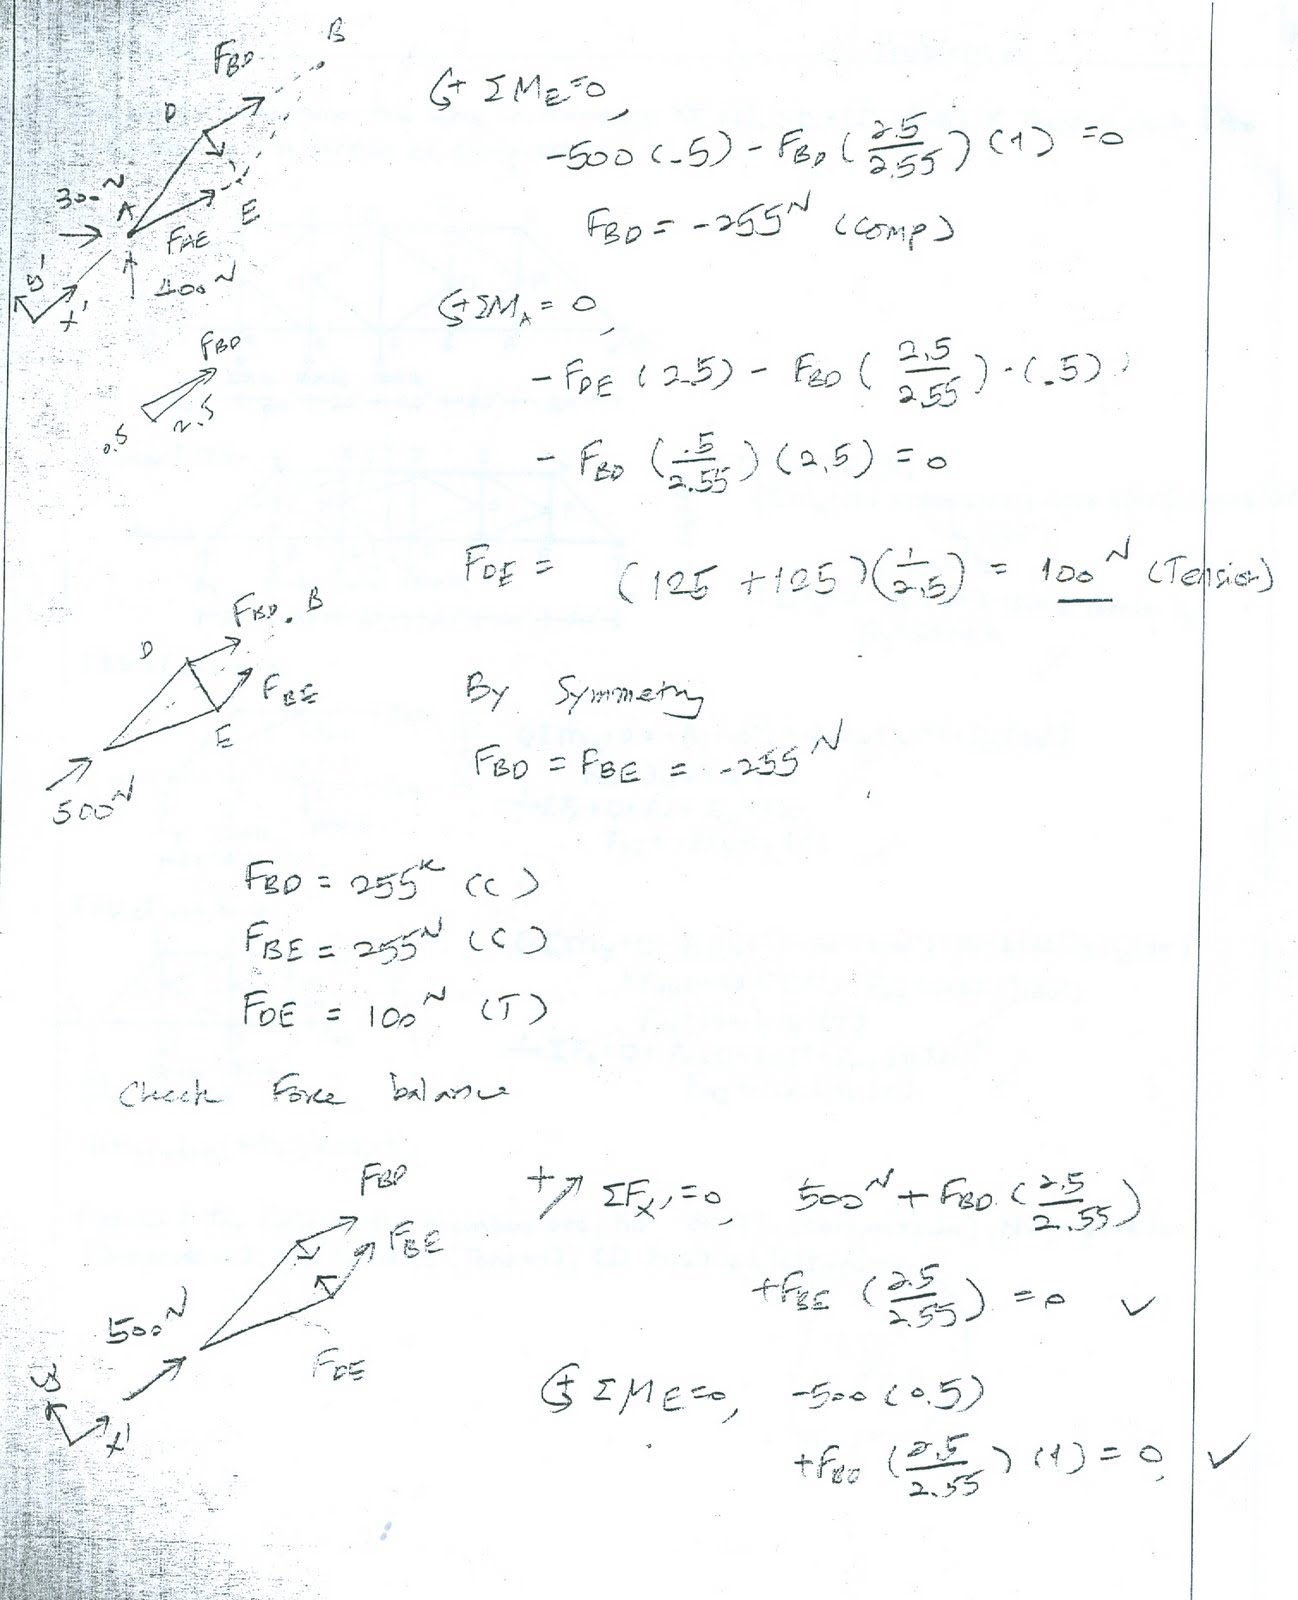 B
F_BD
D
300 N
A
E
F_AE
400 N
y'
x'
↺+ ΣM_E=0,
-500 (.5) - F_BD (2.5/2.55) (1) =0
F_BD = -255 N (comp)
↺+ ΣM_A = 0,
F_BD
0.5
2.5
- F_DE (2.5) - F_BD (2.5/2.55) · (.5)
- F_BD (.5/2.55) (2.5) = 0
F_DE = (125 + 125) (1/2.5) = 100 N (Tension)
F_BD . B
D
F_BE
E
500 N
By Symmetry
F_BD = F_BE = -255 N
F_BD = 255 K (C)
F_BE = 255 N (C)
F_DE = 100 N (T)
Check Force balance
F_BD
F_BE
500 N
F_DE
y'
x'
+↗ ΣF_x' =0, 500 N + F_BD (2.5/2.55)
+F_BE (2.5/2.55) = 0 ✓
↺+ ΣM_E=0, -500 (0.5)
+F_BD (2.5/2.55) (1) = 0, ✓